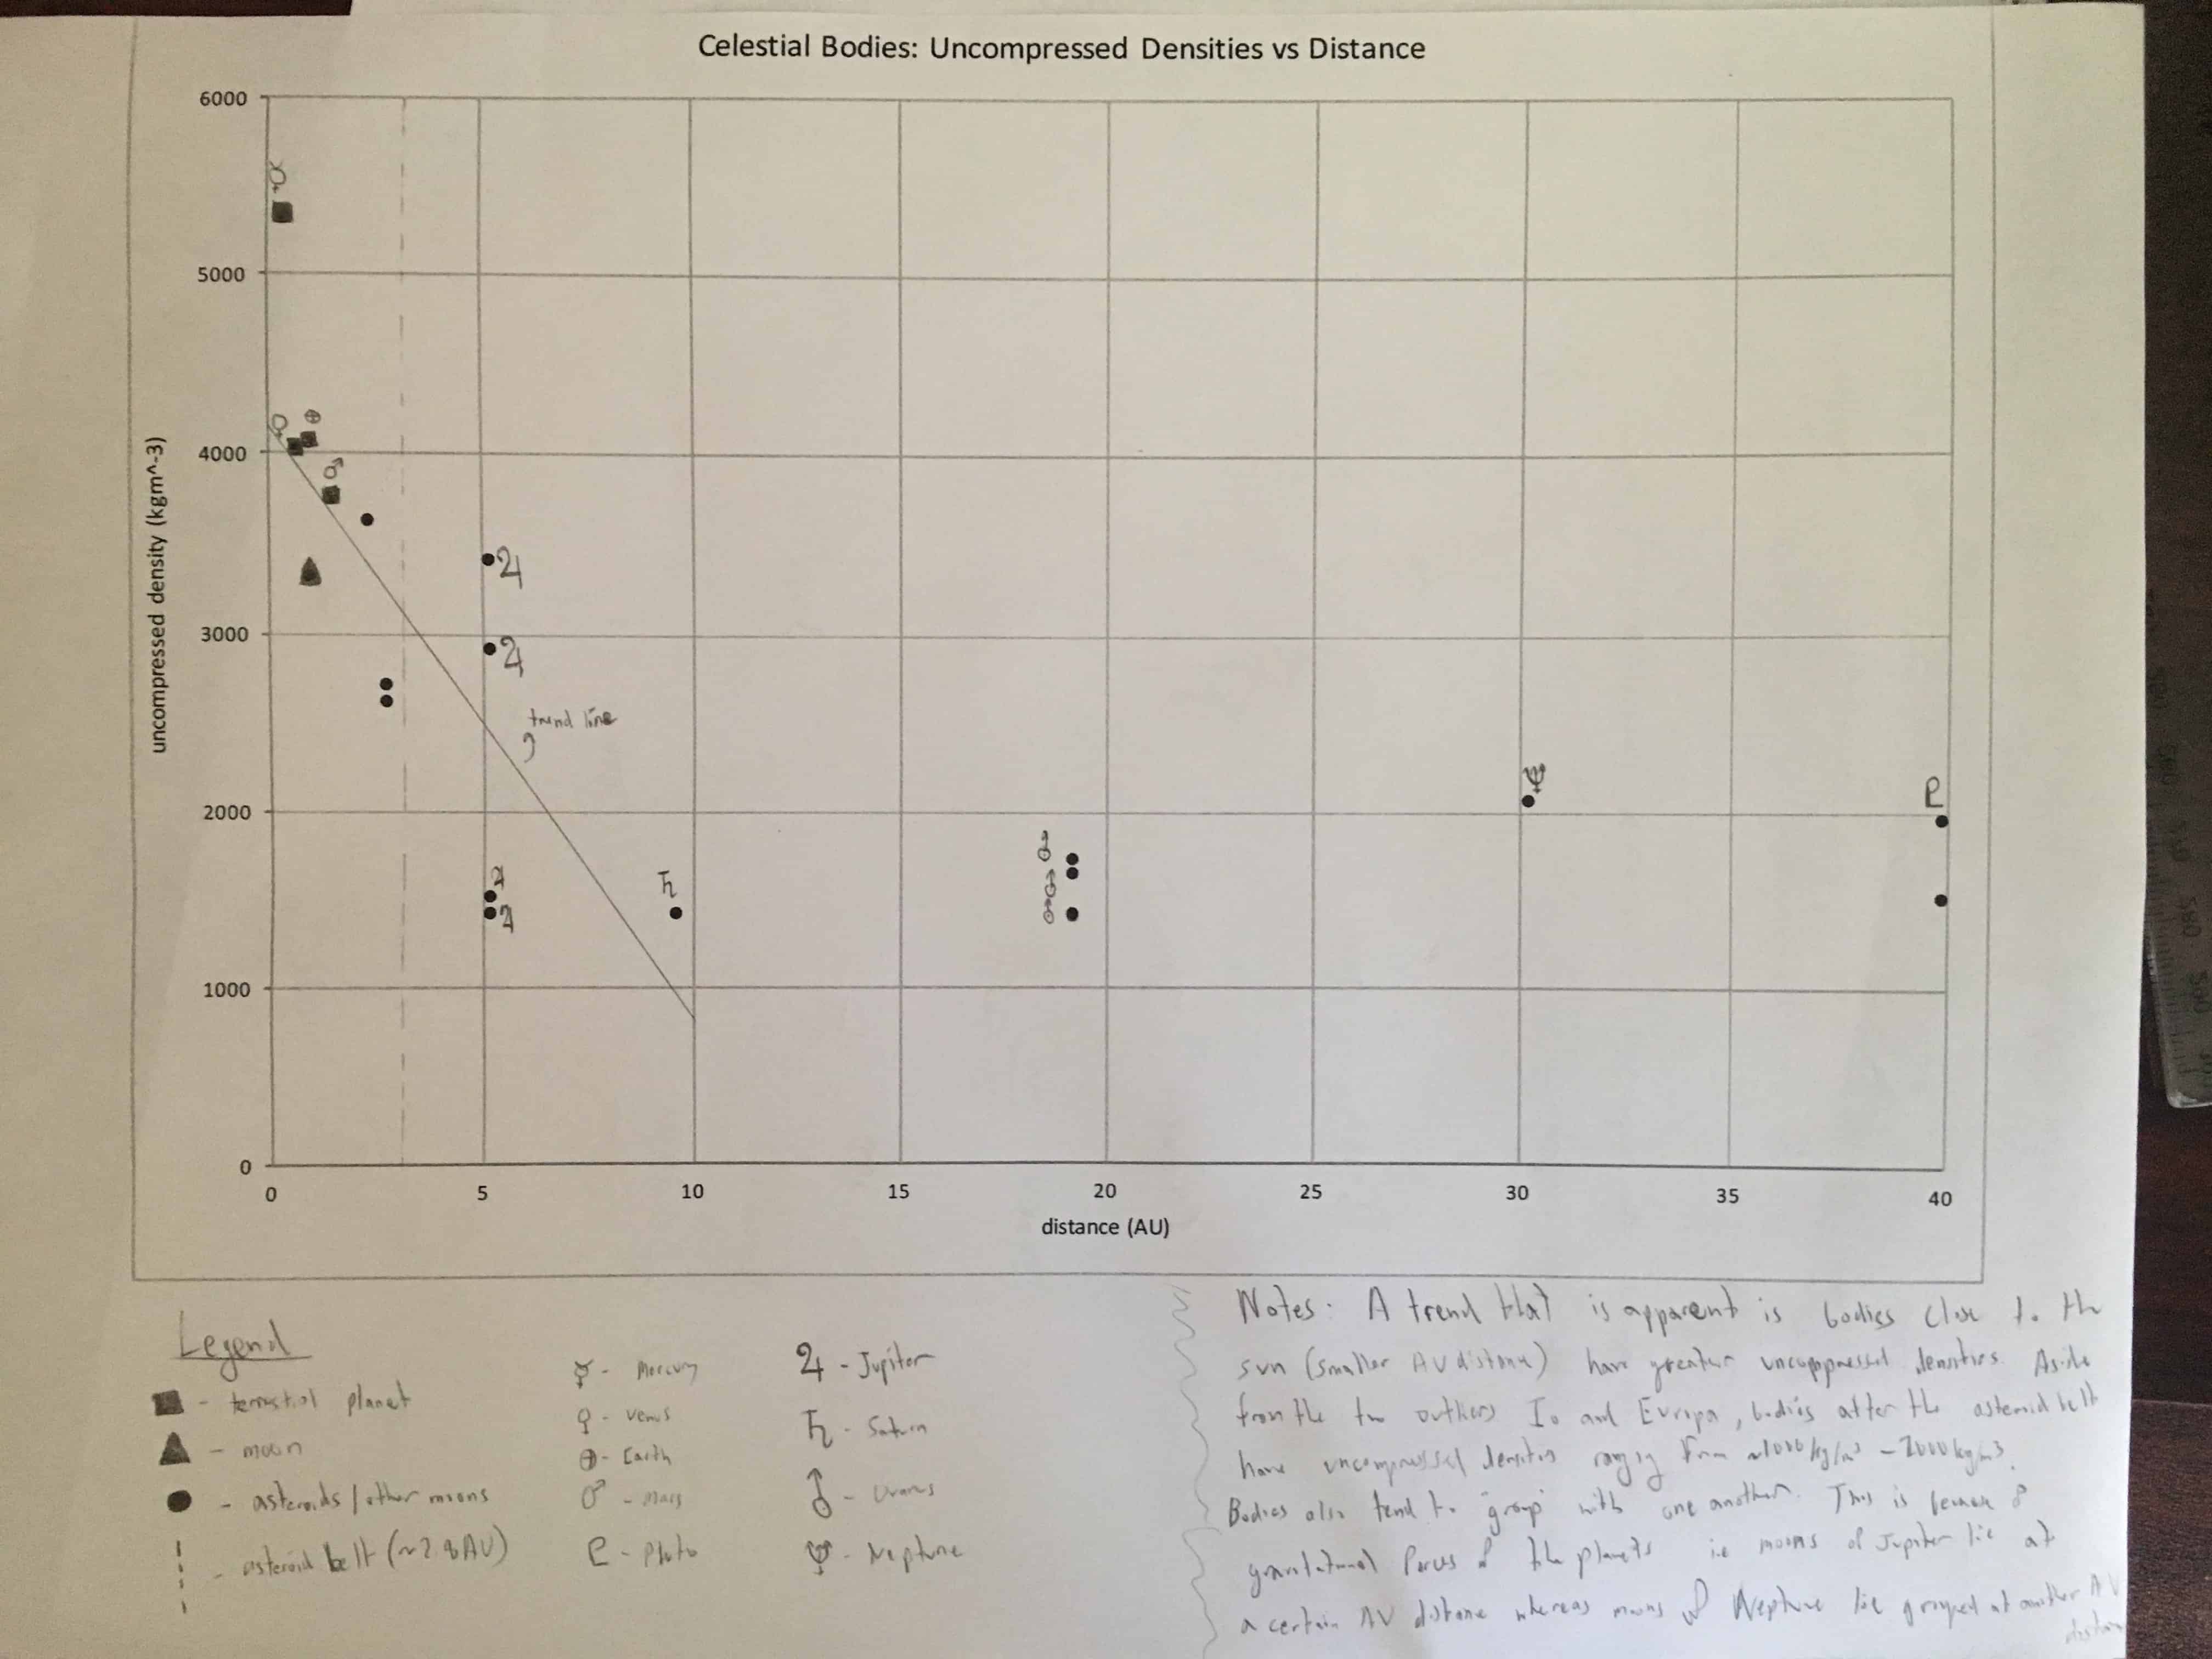 Celestial Bodies: Uncompressed Densities vs Distance
6000
5000
4000
3000
2000
1000
0
uncompressed density (kgm^-3)
☿
♀
⊕
♂
♃
♃
trend line
♃
♃
♄
♆
P
0 5 10 15 20 25 30 35 40
distance (AU)
Legend
■ - terrestial planet
▲ - moon
● - asteroids/other moons
- asteroid belt (~2.8AU)
☿ - Mercury
♀ - Venus
⊕ - Earth
♂ - Mars
P - Pluto
♃ - Jupiter
♄ - Saturn
- Uranus
♆ - Neptune
Notes: A trend that is apparent is bodies close to the
sun (smaller AU distance) have greater densities. Aside
from the two outliers Io and Europa, bodies after the asteroid belt
have uncompressed densities ranging from ~1000kg/m³ - 2000kg/m³.
Bodies also tend to "group" with one another. This is because of
gravitational forces of the planets i.e moons of Jupiter lie at
a certain AU distance whereas moons of Neptune lie grouped at another AU
distance